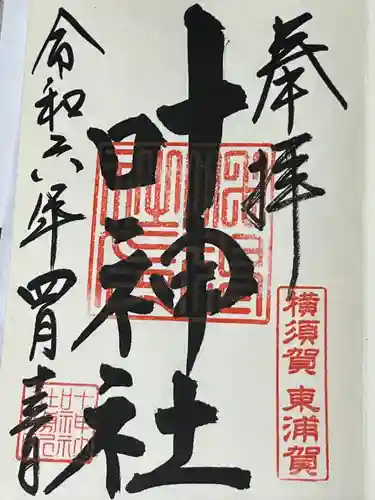 奉拝
横須賀 東浦賀
叶神社
令和六年四月